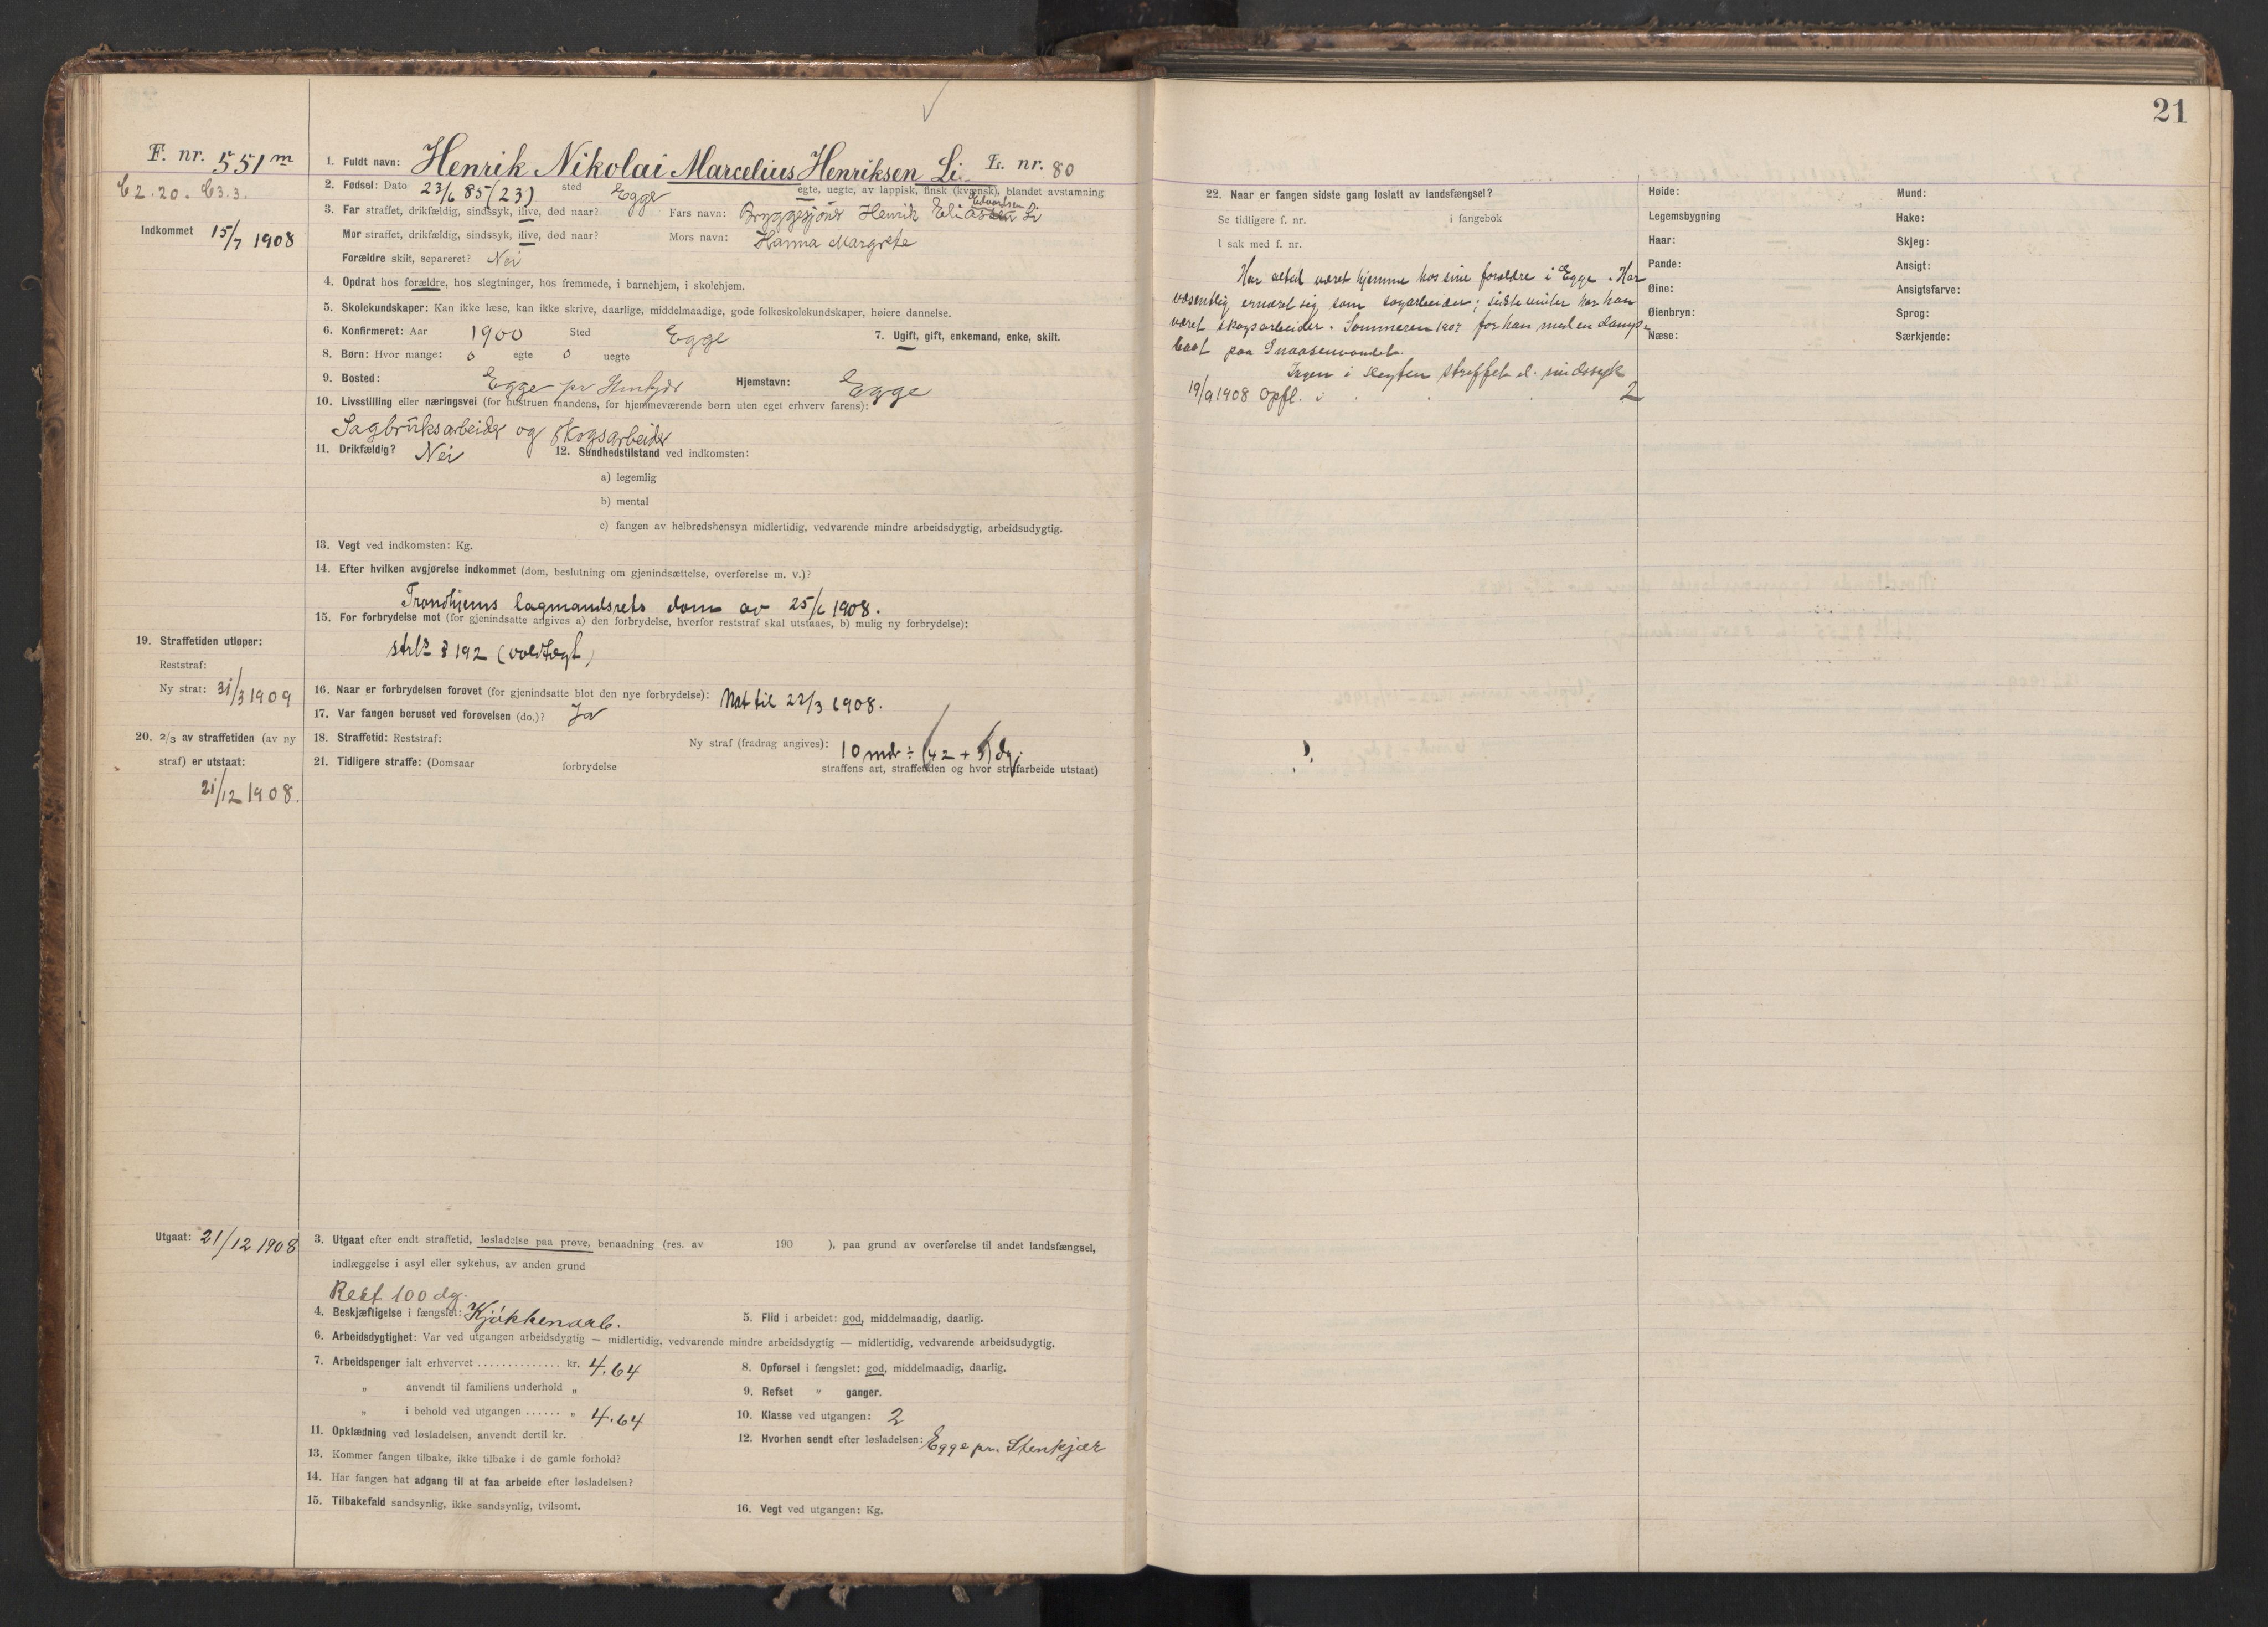 21
F. nr. 551 m
C 2. 20. C 3. 3.
Indkommet 15/7 1908
1. Fuldt navn: Henrik Nikolai Marcelius Henriksen Li. Fs. nr. 80
2. Fødsel: Dato 23/6 85 (23) sted Egge egte, uegte, av lappisk, finsk (kvænsk), blandet avstamning
3. Far straffet, drikfældig, sindssyk, ilive, død naar? Fars navn: Bryggesjouer Henrik Eliassen Edvardsen Li
Mor straffet, drikfældig, sindssyk, ilive, død naar? Mors navn: Hanna Margrete
Forældre skilt, separeret? Nei
4. Opdrat hos forældre, hos slegtninger, hos fremmede, i barnehjem, i skolehjem.
5. Skolekundskaper: Kan ikke læse, kan ikke skrive, daarlige, middelmaadige, gode folkeskolekundskaper, høiere dannelse.
6. Konfirmeret: Aar 1900 Sted Egge 7. Ugift, gift, enkemand, enke, skilt.
8. Børn: Hvor mange: 0 egte 0 uegte
9. Bosted: Egge pr Stenkjær Hjemstavn: Egge
10. Livsstilling eller næringsvei (for hustruen mandens, for hjemmeværende børn uten eget erhverv farens):
Sagbruksarbeider og skogsarbeider
11. Drikfældig? Nei 12. Sundhedstilstand ved indkomsten:
a) legemlig
b) mental
c) fangen av helbredshensyn midlertidig, vedvarende mindre arbeidsdygtig, arbeidsudygtig.
13. Vegt ved indkomsten: Kg.
14. Efter hvilken avgjørelse indkommet (dom, beslutning om gjenindsættelse, overførelse m. v.)?
Trondhjems lagmandsrets dom av 25/6 1908.
15. For forbrydelse mot (for gjenindsatte angives a) den forbrydelse, hvorfor reststraf skal utstaaes, b) mulig ny forbrydelse):
strl. § 192 (voldtægt)
19. Straffetiden utløper:
Reststraf:
Ny straf: 31/3 1909
16. Naar er forbrydelsen forøvet (for gjenindsatte blot den nye forbrydelse): Nat til 22/3 1908.
17. Var fangen beruset ved forøvelsen (do.)? Ja
20. 2/3 av straffetiden (av ny
straf) er utstaat:
21/12 1908.
18. Straffetid: Reststraf: Ny straf (fradrag angives): 10 md ÷ (42 + 3) dg.
21. Tidligere straffe: (Domsaar forbrydelse straffens art, straffetiden og hvor strafarbeide utstaat)
Utgaat: 21/12 1908
3. Utgaat efter endt straffetid, løsladelse paa prøve, benaadning (res. av 190 ), paa grund av overførelse til andet landsfængsel,
indlæggelse i asyl eller sykehus, av anden grund
Rest 100 dg.
4. Beskjæftigelse i fængslet: Kjøkkenarb. 5. Flid i arbeidet: god, middelmaadig, daarlig.
6. Arbeidsdygtighet: Var ved utgangen arbeidsdygtig — midlertidig, vedvarende mindre arbeidsdygtig — midlertidig, vedvarende arbeidsudygtig.
7. Arbeidspenger ialt erhvervet .............. kr. 4.64 8. Opførsel i fængslet: god, middelmaadig, daarlig.
„ anvendt til familiens underhold „ 9. Refset „ ganger.
„ i behold ved utgangen ...... „ 4.64 10. Klasse ved utgangen: 2
11. Opklædning ved løsladelsen, anvendt dertil kr. 12. Hvorhen sendt efter løsladelsen: Egge pr. Stenkjær
13. Kommer fangen tilbake, ikke tilbake i de gamle forhold?
14. Har fangen hat adgang til at faa arbeide efter løsladelsen?
15. Tilbakefald sandsynlig, ikke sandsynlig, tvilsomt. 16. Vegt ved utgangen: Kg.
22. Naar er fangen sidste gang løslatt av landsfængsel?
Se tidligere f. nr. i fangebok
I sak med f. nr.
Har altid været hjemme hos sine forældre i Egge. Har
væsentlig ernært sig som sagarbeider; sidste vinter har han
været skogsarbeider. Sommeren 1907 for han med en damp-
baat paa Snaasenvandet.
Ingen i slegten straffet el. sindssyk
19/9 1908 Opfl. i 2
Høide: Mund:
Legemsbygning Hake:
Haar: Skjeg:
Pande: Ansigt:
Øine: Ansigtsfarve:
Øienbryn: Sprog:
Næse: Særkjende: